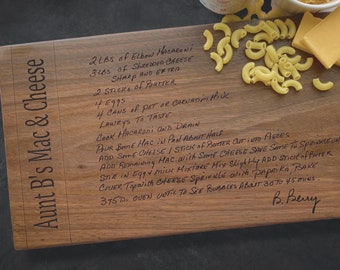 Aunt B's Mac & Cheese
2 lbs of Elbow Macaroni
3 lbs of Shredded Cheese
Sharp and Extra
2 Sticks of Butter
4 Eggs
4 Cans of Pet or Carnation Milk
Lawrys to Taste
Cook Macaroni and Drain
Pour Some Mac in Pan About Half
Add Some Cheese 1 Stick of Butter Cut into Pieces
Add Remaining Mac with Some Cheese Save Some to Sprinkle
Stir in Egg & Milk Mixture Mix Slightly Add Stick of Butter
Cover Top with Cheese Sprinkle with "Paprika" Bake
375° Oven Until to See Bubbles About 30 to 45 mins
B. Berry